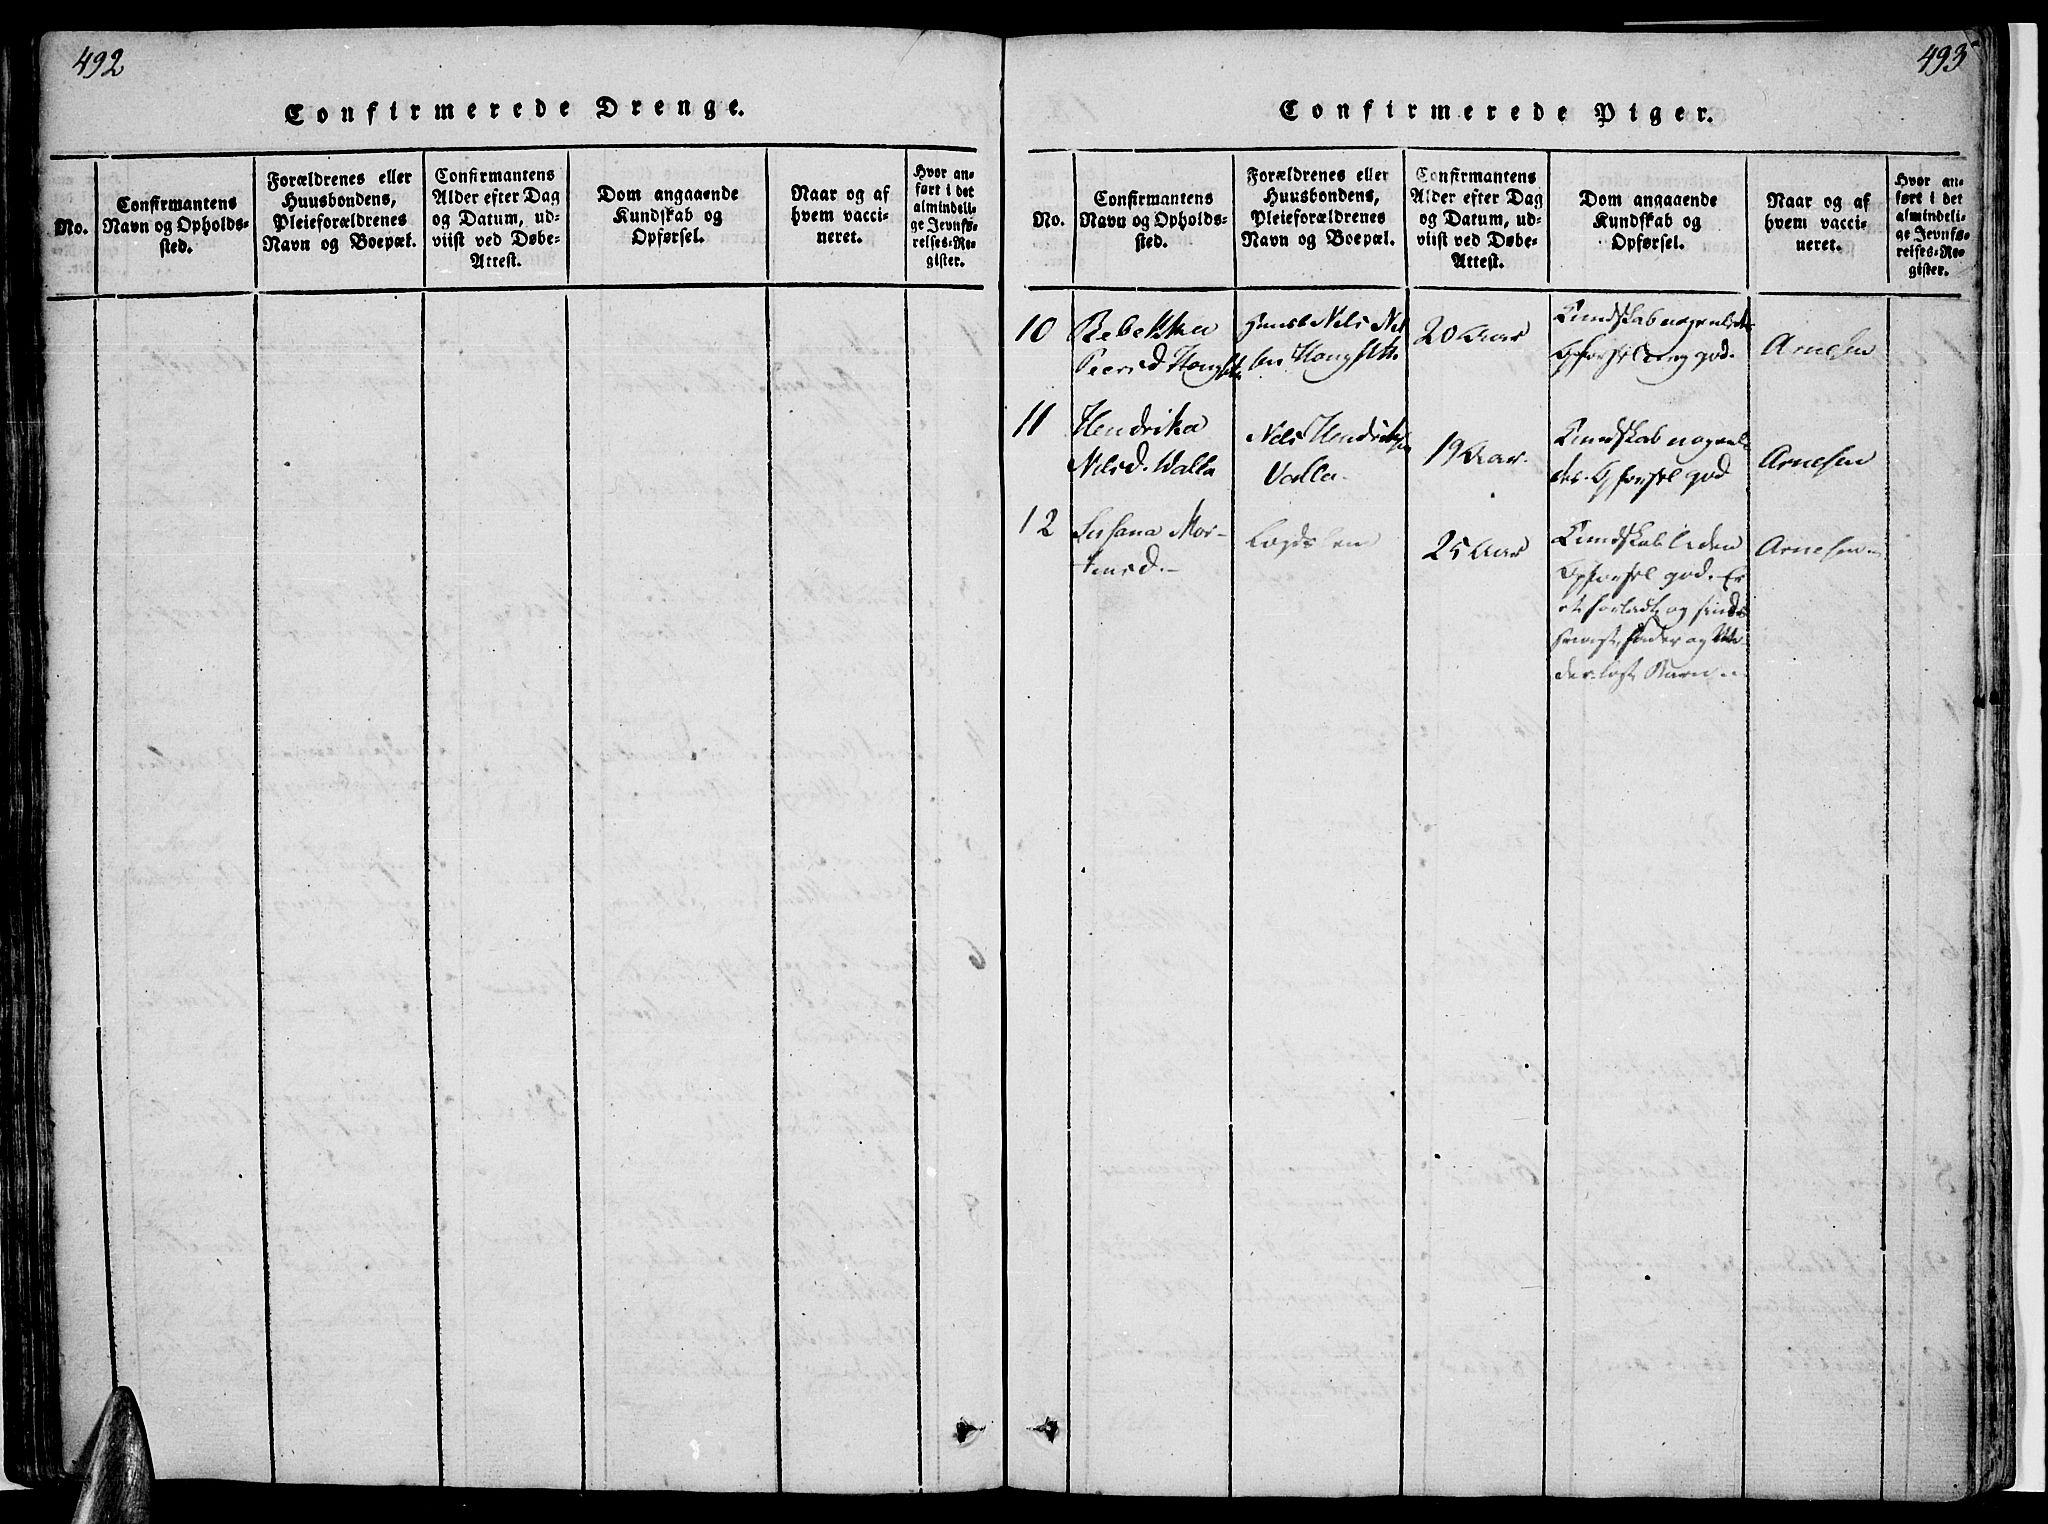 492
Confirmerede Drenge.
No.
Confirmantens
Navn og Opholds-
sted.
Forældrenes eller
Huusbondens,
Pleieforældrenes
Navn og Boepæl.
Confirmantens
Alder efter Dag
og Datum, ud-
viist ved Døbe-
Attest.
Dom angaaende
Kundskab og
Opførsel.
Naar og af
hvem vacci-
neret.
Hvor an-
ført i det
almindeli-
ge Jevnfø-
relses-Re-
gister.
493
Confirmerede Piger.
No.
Confirmantens
Navn og Opholds-
sted.
Forældrenes eller
Huusbondens,
Pleieforældrenes
Navn og Boepæl.
Confirmantens
Alder efter Dag
og Datum, ud-
viist ved Døbe-
Attest.
Dom angaaende
Kundskab og
Opførsel.
Naar og af
hvem vacci-
neret.
Hvor an-
ført i det
almindeli-
ge Jevnfø-
relses-Re-
gister.
10
Rebekka
Peersd
Nils Nil
sen
20 Aar
Kundskab nogenledes
Opførsel god.
Arnesen
11
Hendrika
Nilsd. Walla
Nils Hendriksen
Valla.
19 Aar.
Kundskab nogenle
des. Opførsel god
Arnesen
12
Susana Mor-
tensd.
Lægdslem
25 Aar
Kundskab liden
Opførsel god. Er
et forladt og sinds
fader og Mo
derløst Barn
Arnesen